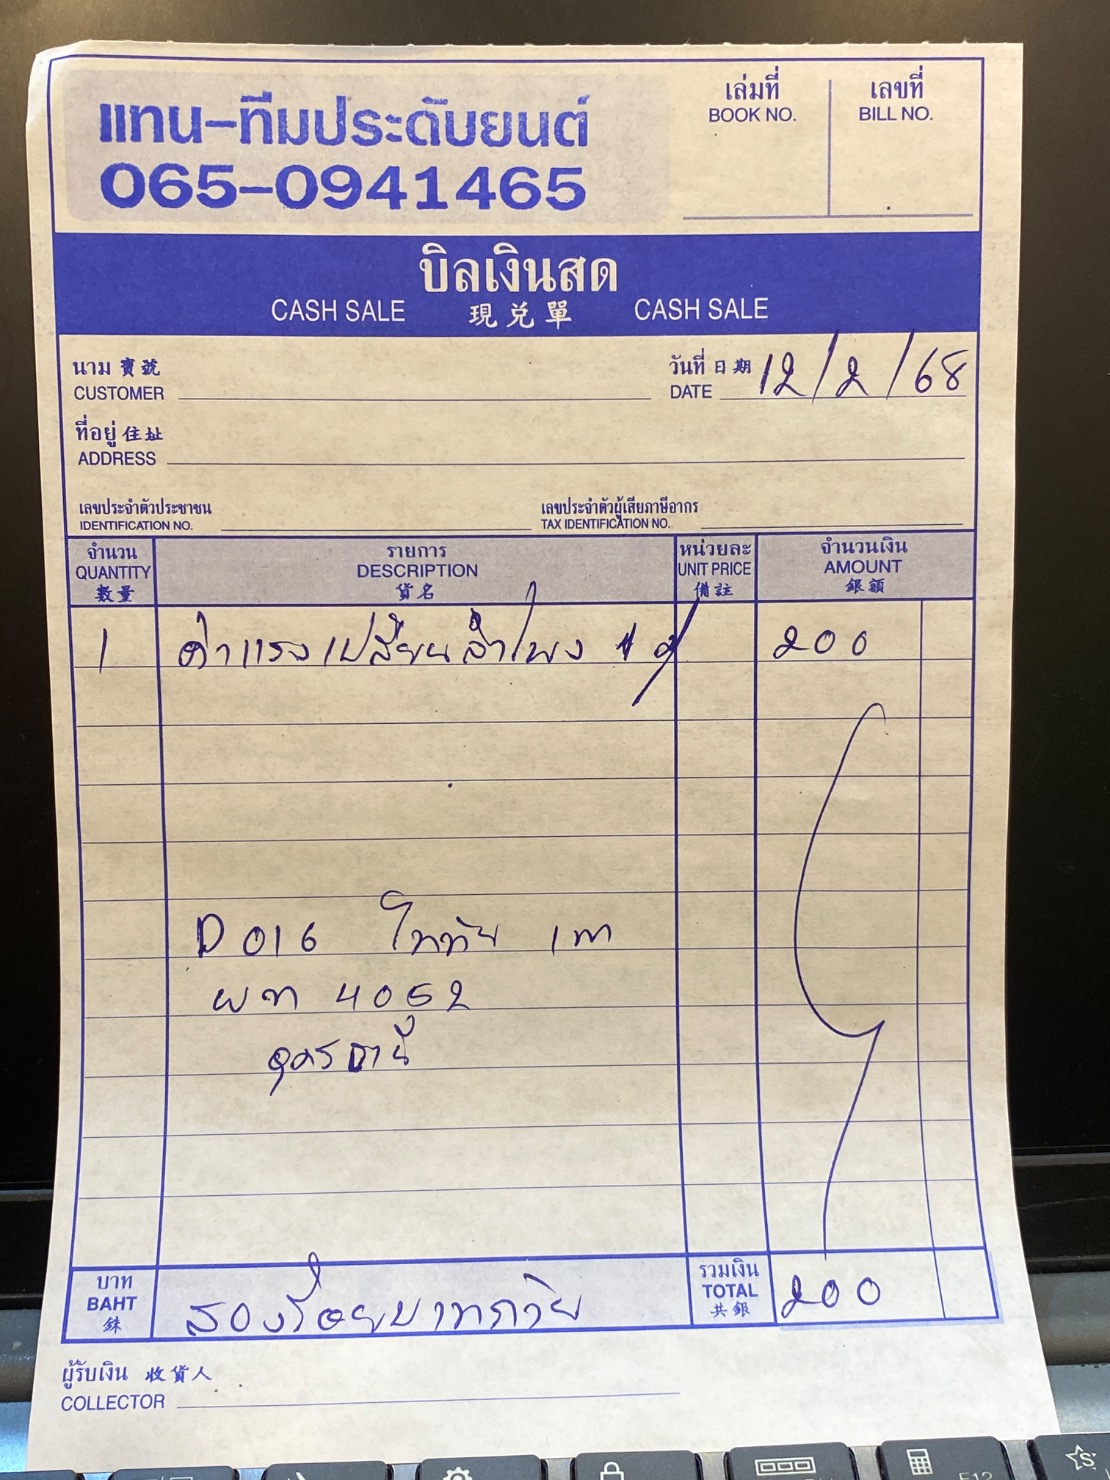 แทน-ทีมประดับยนต์
065-0941465
เล่มที่
BOOK NO.
เลขที่
BILL NO.
บิลเงินสด
CASH SALE 現兌單 CASH SALE
นาม 寶號
CUSTOMER
วันที่ 日期
DATE 12/2/68
ที่อยู่ 住址
ADDRESS
เลขประจำตัวประชาชน
IDENTIFICATION NO.
เลขประจำตัวผู้เสียภาษีอากร
TAX IDENTIFICATION NO.
จำนวน
QUANTITY
數量
รายการ
DESCRIPTION
貨名
หน่วยละ
UNIT PRICE
備註
จำนวนเงิน
AMOUNT
銀額
1 ค่าแรงเปลี่ยนลำโพง 200
D016
ผท 4052
อุดรธานี
บาท
BAHT
銖
สองร้อยบาทถ้วย
รวมเงิน
TOTAL
共銀
200
ผู้รับเงิน 收貨人
COLLECTOR
F12